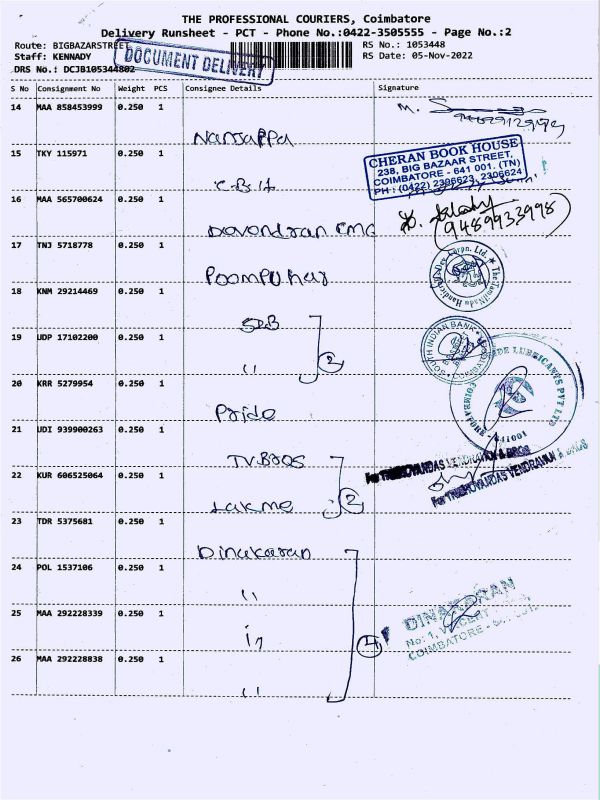 THE PROFESSIONAL COURIERS, Coimbatore
Delivery Runsheet - PCT - Phone No.:0422-3505555 - Page No.:2
Route: BIGBAZARSTREET
RS No.: 1053448
Staff: KENNADY
RS Date: 05-Nov-2022
DRS No.: DCJB105344802
DOCUMENT DELIVERY
S No Consignment No Weight PCS Consignee Details Signature
14 MAA 858453999 0.250 1
M.
Narsappa
15 TKY 115971 0.250 1
CHERAN BOOK HOUSE
238, BIG BAZAAR STREET,
COIMBATORE - 641 001. (TN)
PH : (0422) 2306623, 2306624
16 MAA 565700624 0.250 1
9489933998
17 TNJ 5718778 0.250 1
Poompuhar
18 KNM 29214469 0.250 1
19 UDP 17102200 0.250 1
SOUTH INDIAN BANK
" 2
20 KRR 5279954 0.250 1
LUBRICANTS PVT LTD
COIMBATORE - 641001
Pride
21 UDI 939900263 0.250 1
For TRIBHOVANDAS VENDRAVAN & BROS
22 KUR 606525064 0.250 1
For TRIBHOVANDAS VENDRAVAN & BROS
Lakme 2
23 TDR 5375681 0.250 1
Dinakaran
24 POL 1537106 0.250 1
"
DINAKARAN
25 MAA 292228339 0.250 1
No: 1,
COIMBATORE -
4
26 MAA 292228838 0.250 1
"